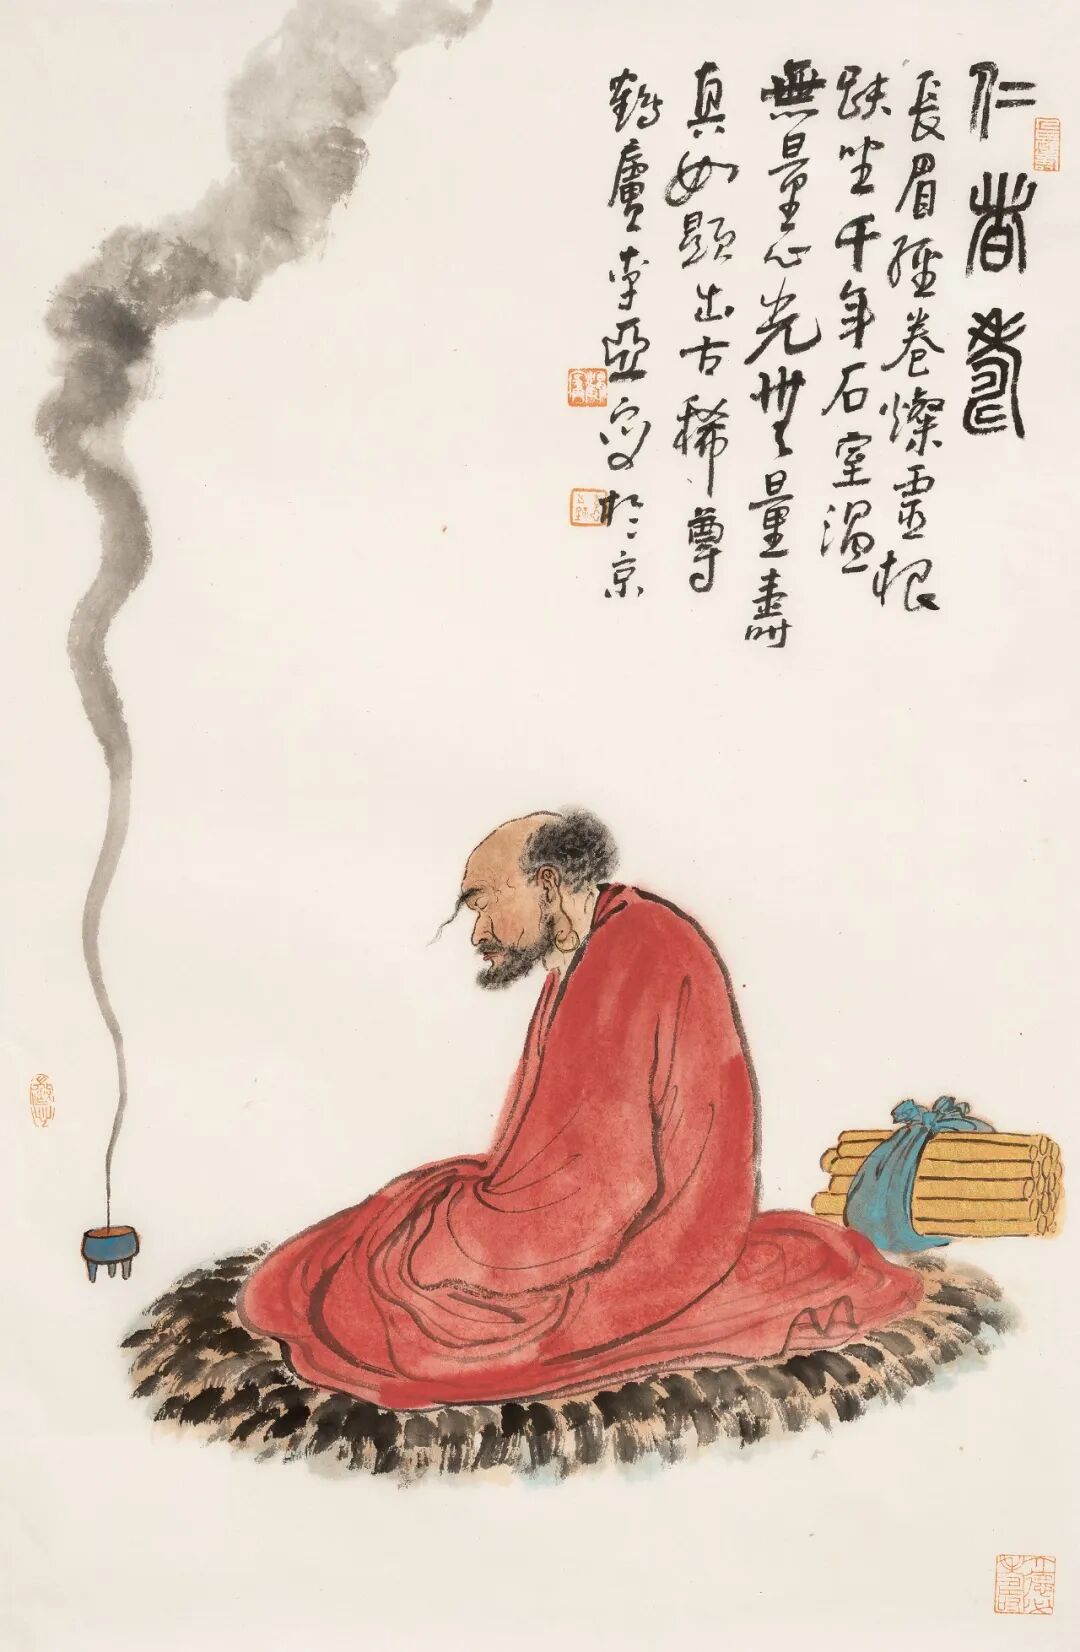 仁者壽
長眉經卷燦靈根
趺坐千年石室溫
無量心光無量壽
真如顯出古稀尊
鶴廬李亞寫於京